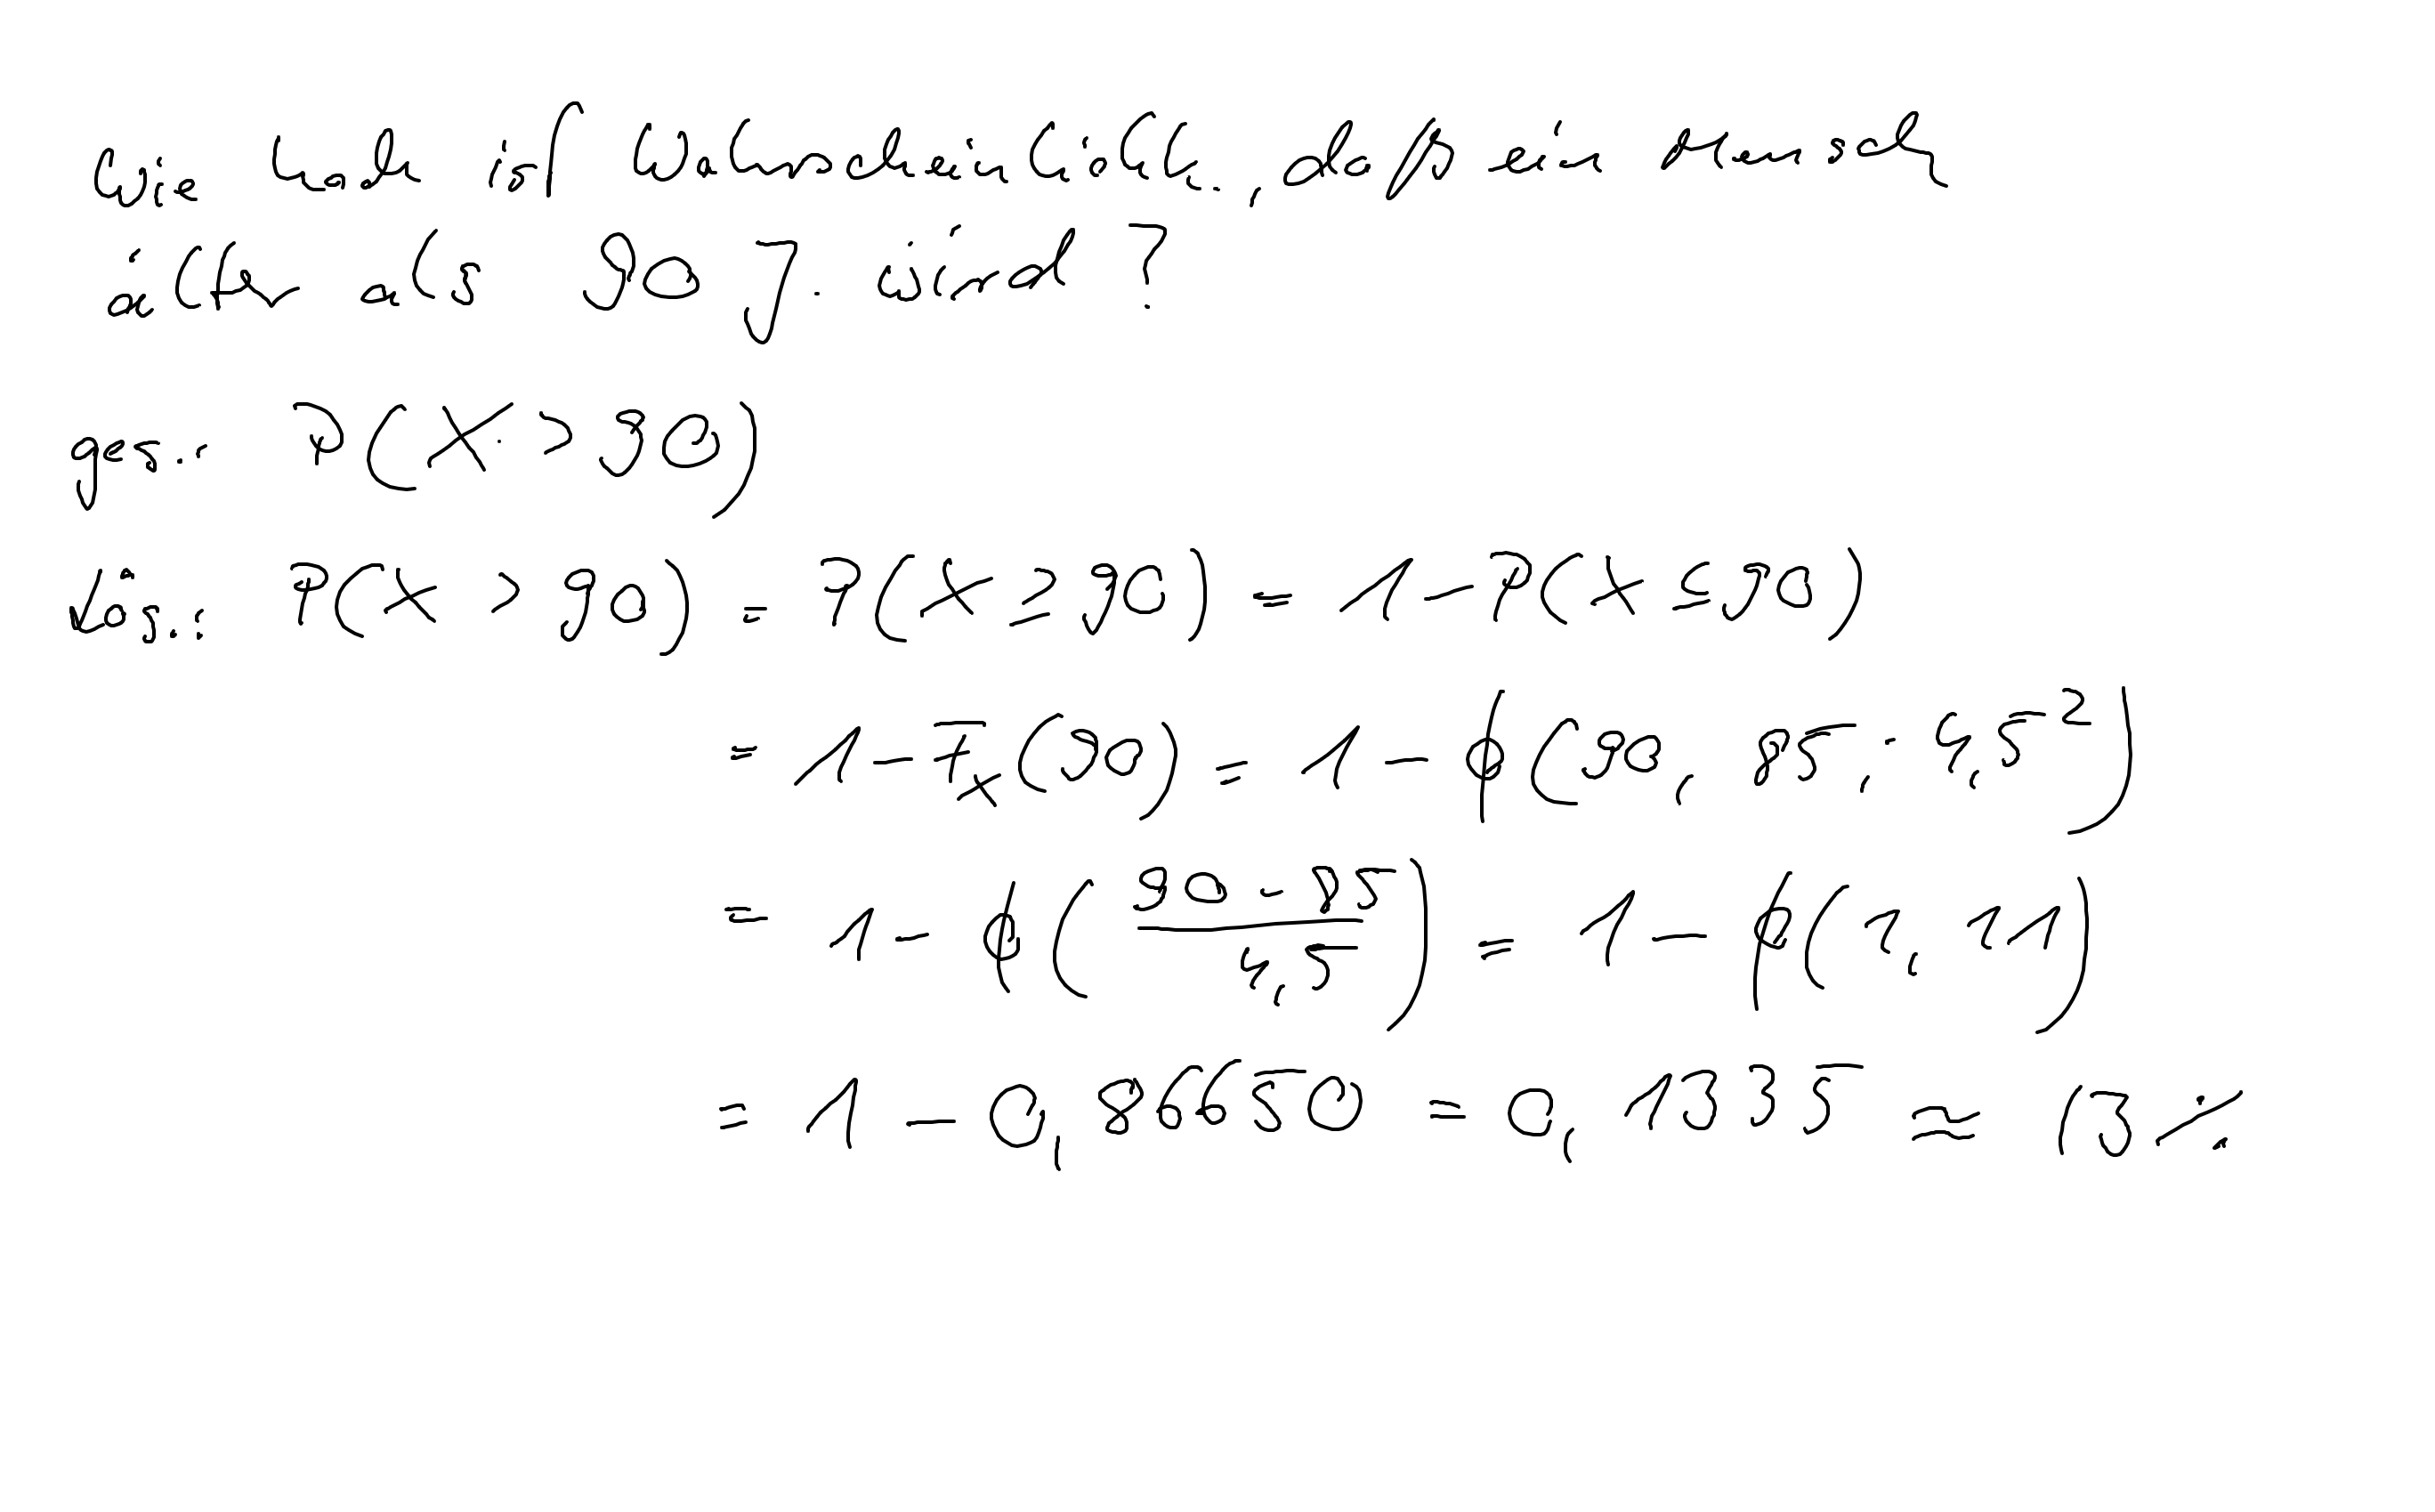 Wie hoch ist Wahrscheinlichk., daß ein Mensch
älter als 90 J. wird?
ges.: P(X > 90)
Lös.: P(X > 90) = P(X ≥ 90) = 1 - P(X ≤ 90)
= 1 - Fx(90) = 1 - ϕ(90, 85; 4,5²)
= 1 - ϕ((90 - 85)/4,5) = 1 - ϕ(1,11)
= 1 - 0,86650 = 0,1335 = 13%